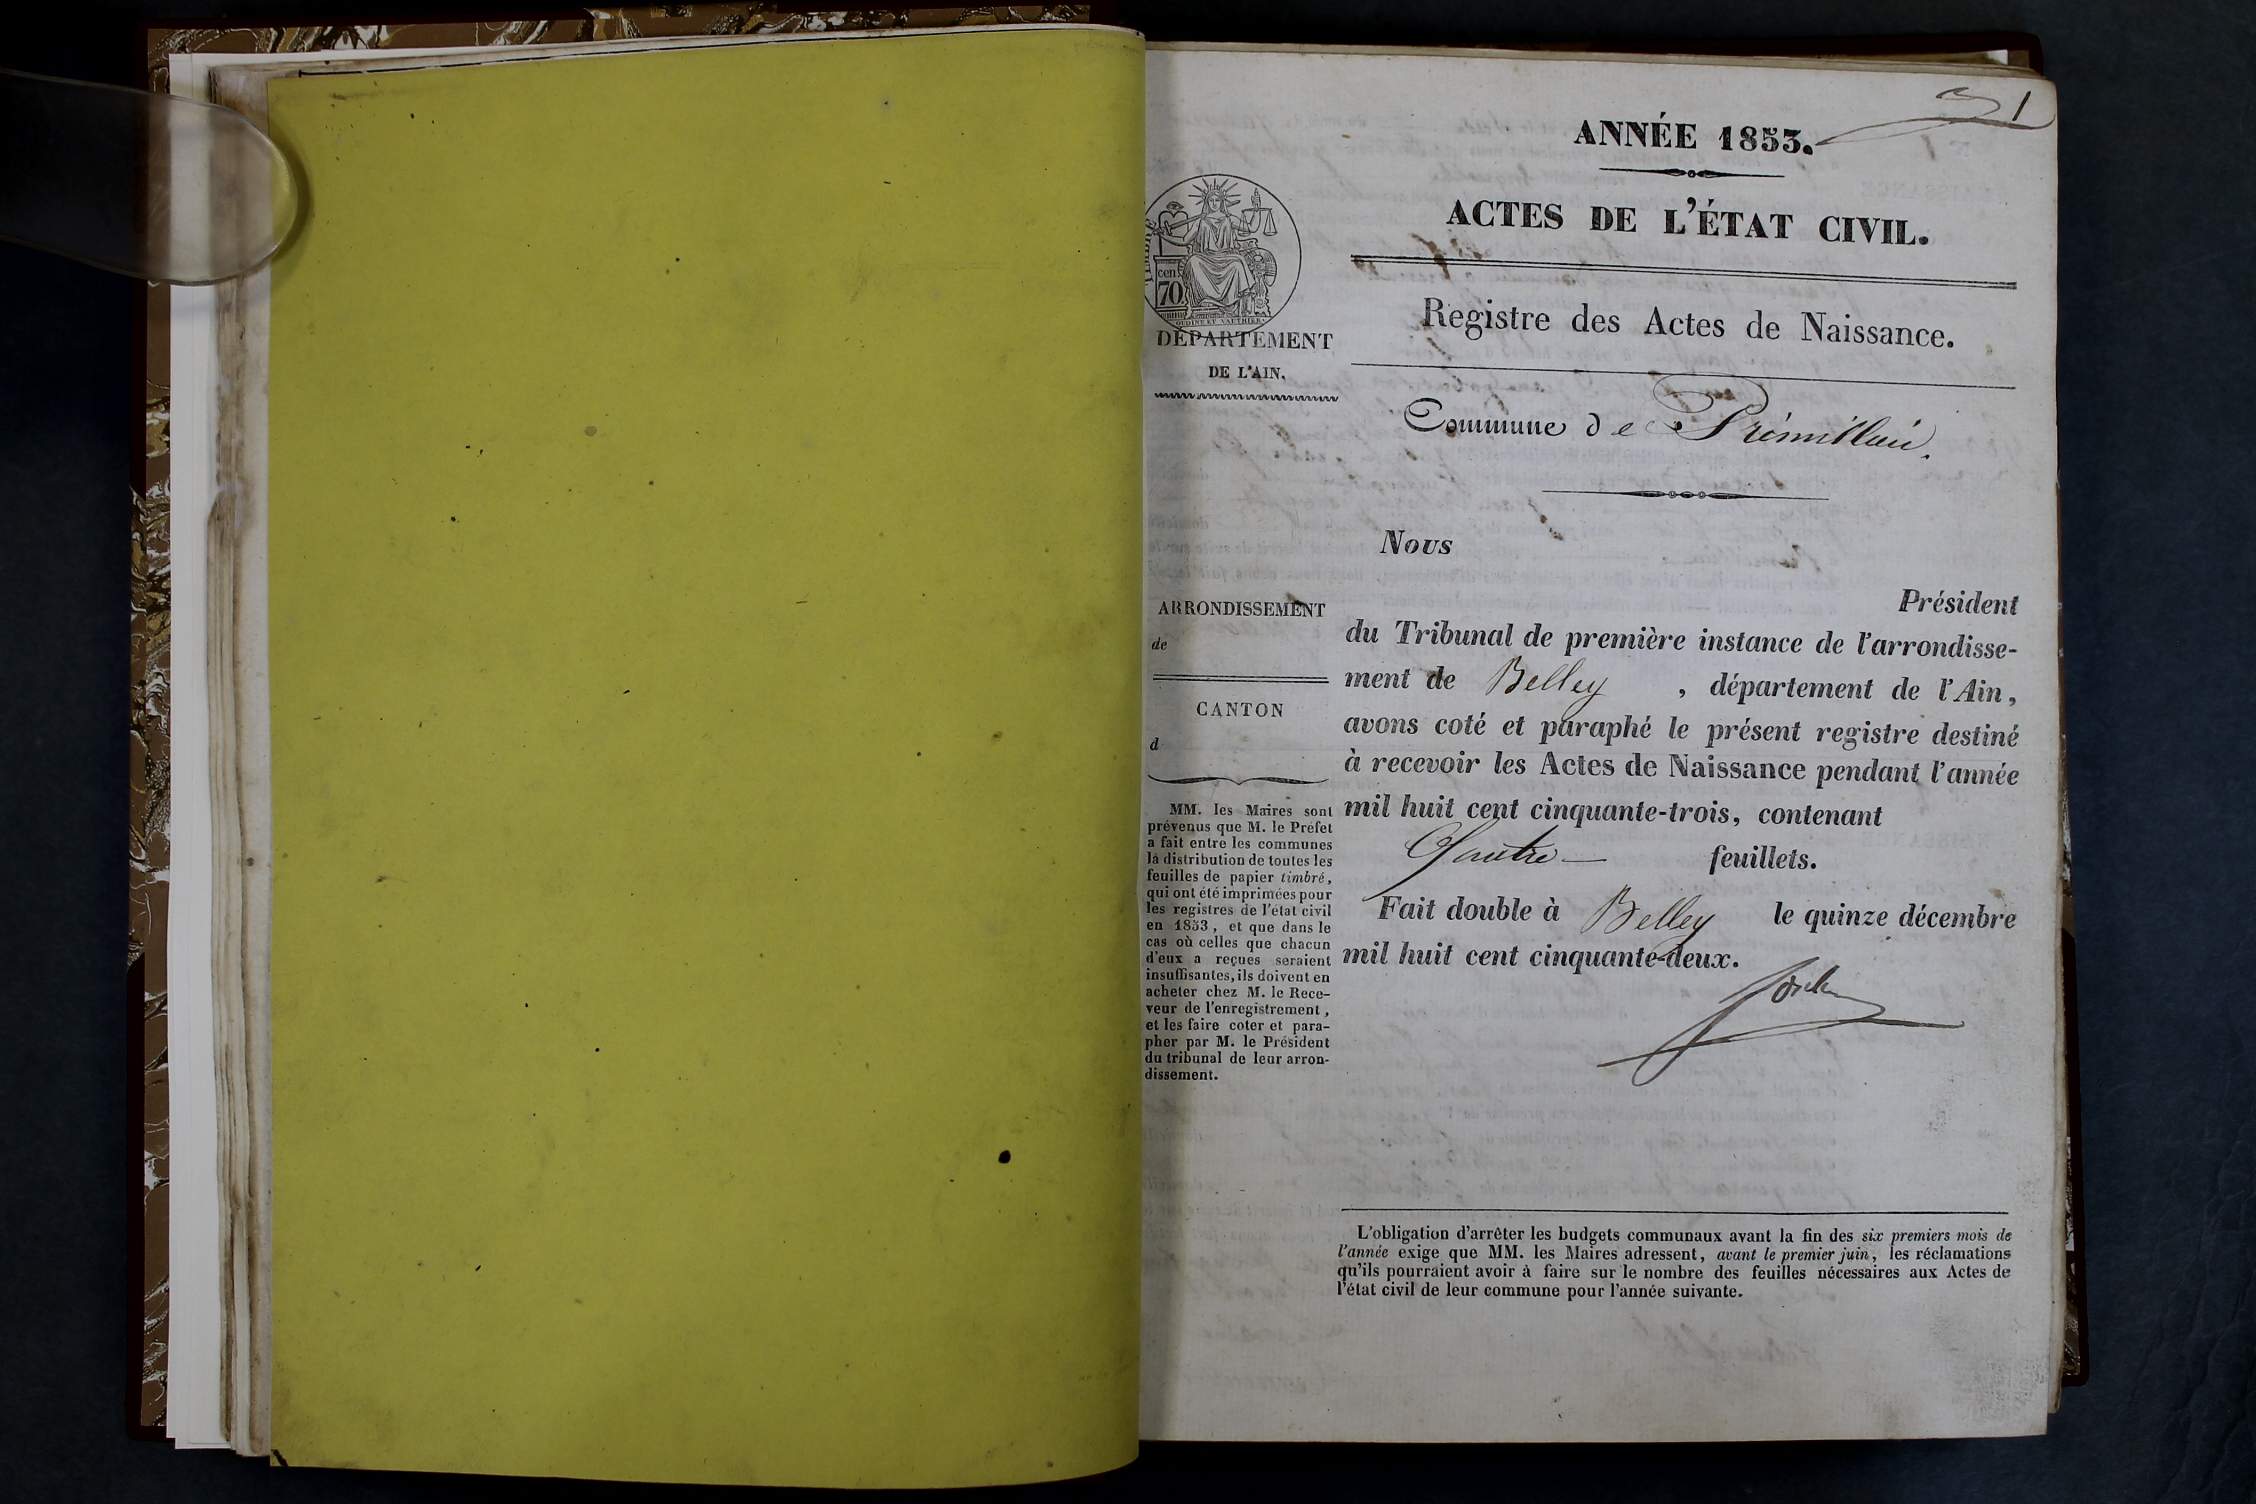 1
ANNÉE 1853.
ACTES DE L'ÉTAT CIVIL.
TIMBRE
cen
70
OUDINÉ ET VAUTHIER
DÉPARTEMENT
DE L'AIN.
Registre des Actes de Naissance.
Commune de Prémillieu.
Nous
Président
du Tribunal de première instance de l'arrondisse-
ment de Belley, département de l'Ain,
avons coté et paraphé le présent registre destiné
à recevoir les Actes de Naissance pendant l'année
mil huit cent cinquante-trois, contenant
Quatre feuillets.
Fait double à Belley le quinze décembre
mil huit cent cinquante-deux.
ARRONDISSEMENT
de
CANTON
d
MM. les Maires sont
prévenus que M. le Préfet
a fait entre les communes
la distribution de toutes les
feuilles de papier timbré,
qui ont été imprimées pour
les registres de l'état civil
en 1853, et que dans le
cas où celles que chacun
d'eux a reçues seraient
insuffisantes, ils doivent en
acheter chez M. le Rece-
veur de l'enregistrement,
et les faire coter et para-
pher par M. le Président
du tribunal de leur arron-
dissement.
L'obligation d'arrêter les budgets communaux avant la fin des six premiers mois de
l'année exige que MM. les Maires adressent, avant le premier juin, les réclamations
qu'ils pourraient avoir à faire sur le nombre des feuilles nécessaires aux Actes de
l'état civil de leur commune pour l'année suivante.